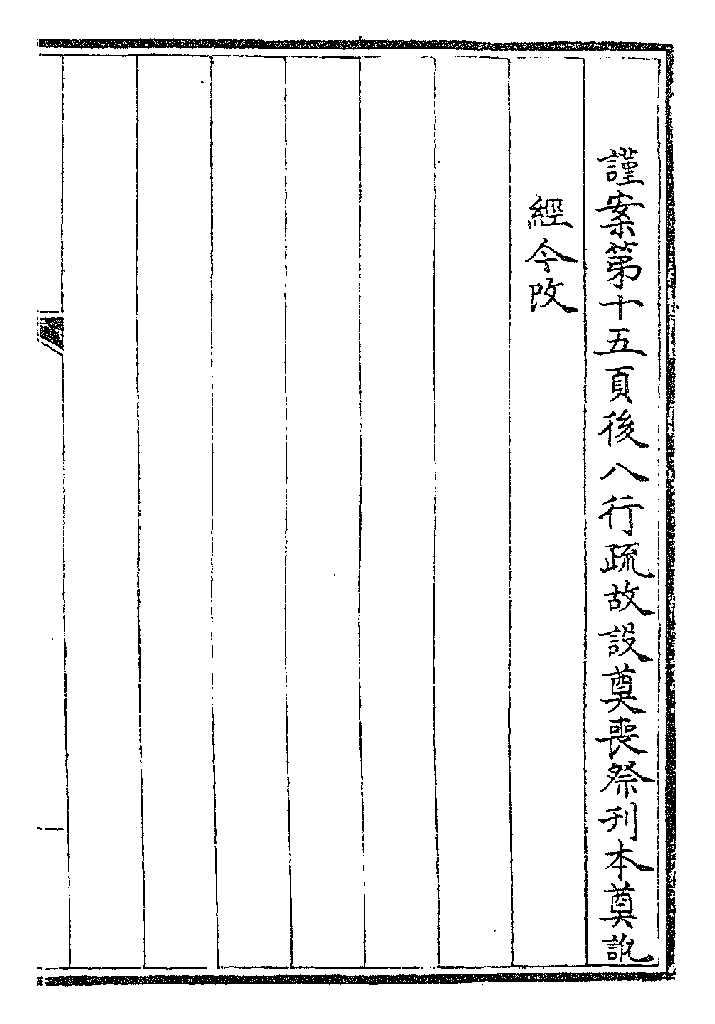 謹案第十五頁後八行疏故設奠喪祭刋本奠訛
經今改